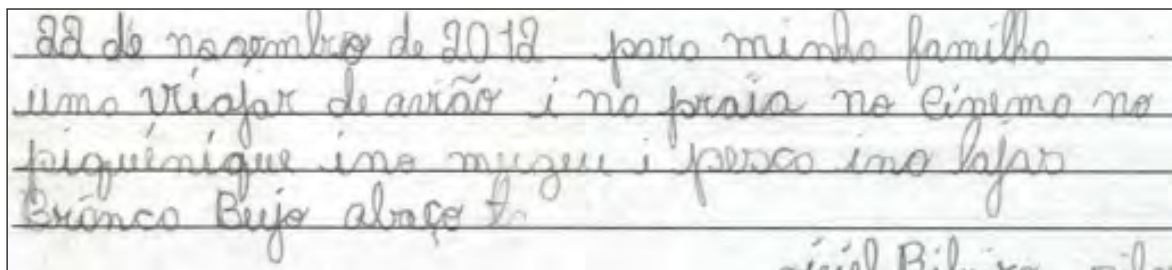 22 de novembro de 2012 para minha familha
uma viajar de avião i na praia no cinema no
piquiénique ino muzeu i pesco ino lajar
Branco Bujo abaço
Ribeiro